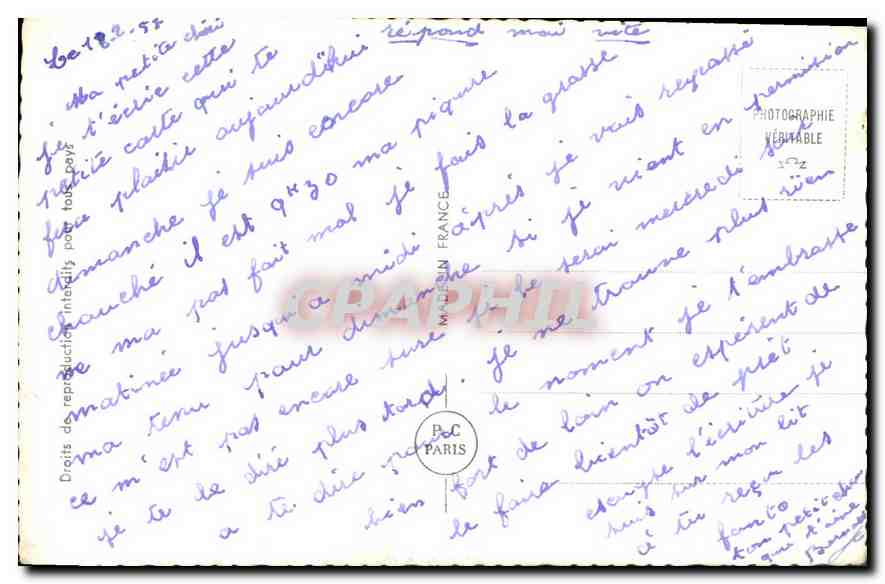 Le 18-2-57
répond moi vite
Ma petite chéri
je t'écrie cette
petite carte qui te
fera plaisir aujourd'hui
dimanche je suis encore
chouché il est 9h30 ma piqure
ne ma pas fait mal je fais la grasse
matinée jusqu'a midi après je vais repassé
ma tenu pour dimanche si je vient en permission
ce n'est pas encore sure je le serai mercredi soir
je te le diré plus tard. je ne trouve plus rien
a te dire pour le moment je t'embrasse
bien fort de loin on espérent de
le faire bientôt de prèt
escuse l'écriture je
suis sur mon lit
à tu reçu les
foto
ton petit cheri
qui t'aime
Bernard
PHOTOGRAPHIE
VÉRITABLE
Droits de reproduction interdits pour tous pays
MADE IN FRANCE
CPAPHIL
P C
PARIS